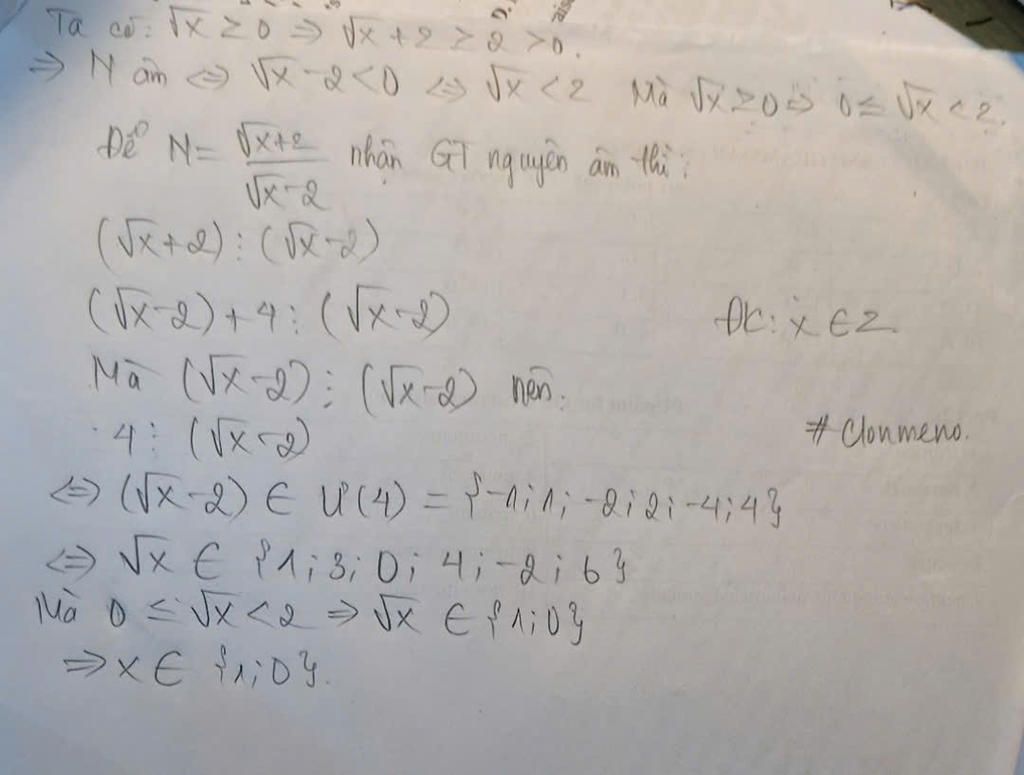 Ta có: √x ≥ 0 ⇒ √x + 2 ≥ 2 > 0.
⇒ N âm ⇔ √x - 2 < 0 ⇔ √x < 2 Mà √x ≥ 0 ⇒ 0 ≤ √x < 2.
Để N = (√x+2)/(√x-2) nhận GT nguyên âm thì:
(√x+2) ⋮ (√x-2)
(√x-2)+4 ⋮ (√x-2) ĐK: x ∈ Z.
Mà (√x-2) ⋮ (√x-2) nên:
4 ⋮ (√x-2) # Clonmeno.
⇔ (√x-2) ∈ Ư(4) = {-1; 1; -2; 2; -4; 4}
⇔ √x ∈ {1; 3; 0; 4; -2; 6}
Mà 0 ≤ √x < 2 ⇒ √x ∈ {1; 0}
⇒ x ∈ {1; 0}.